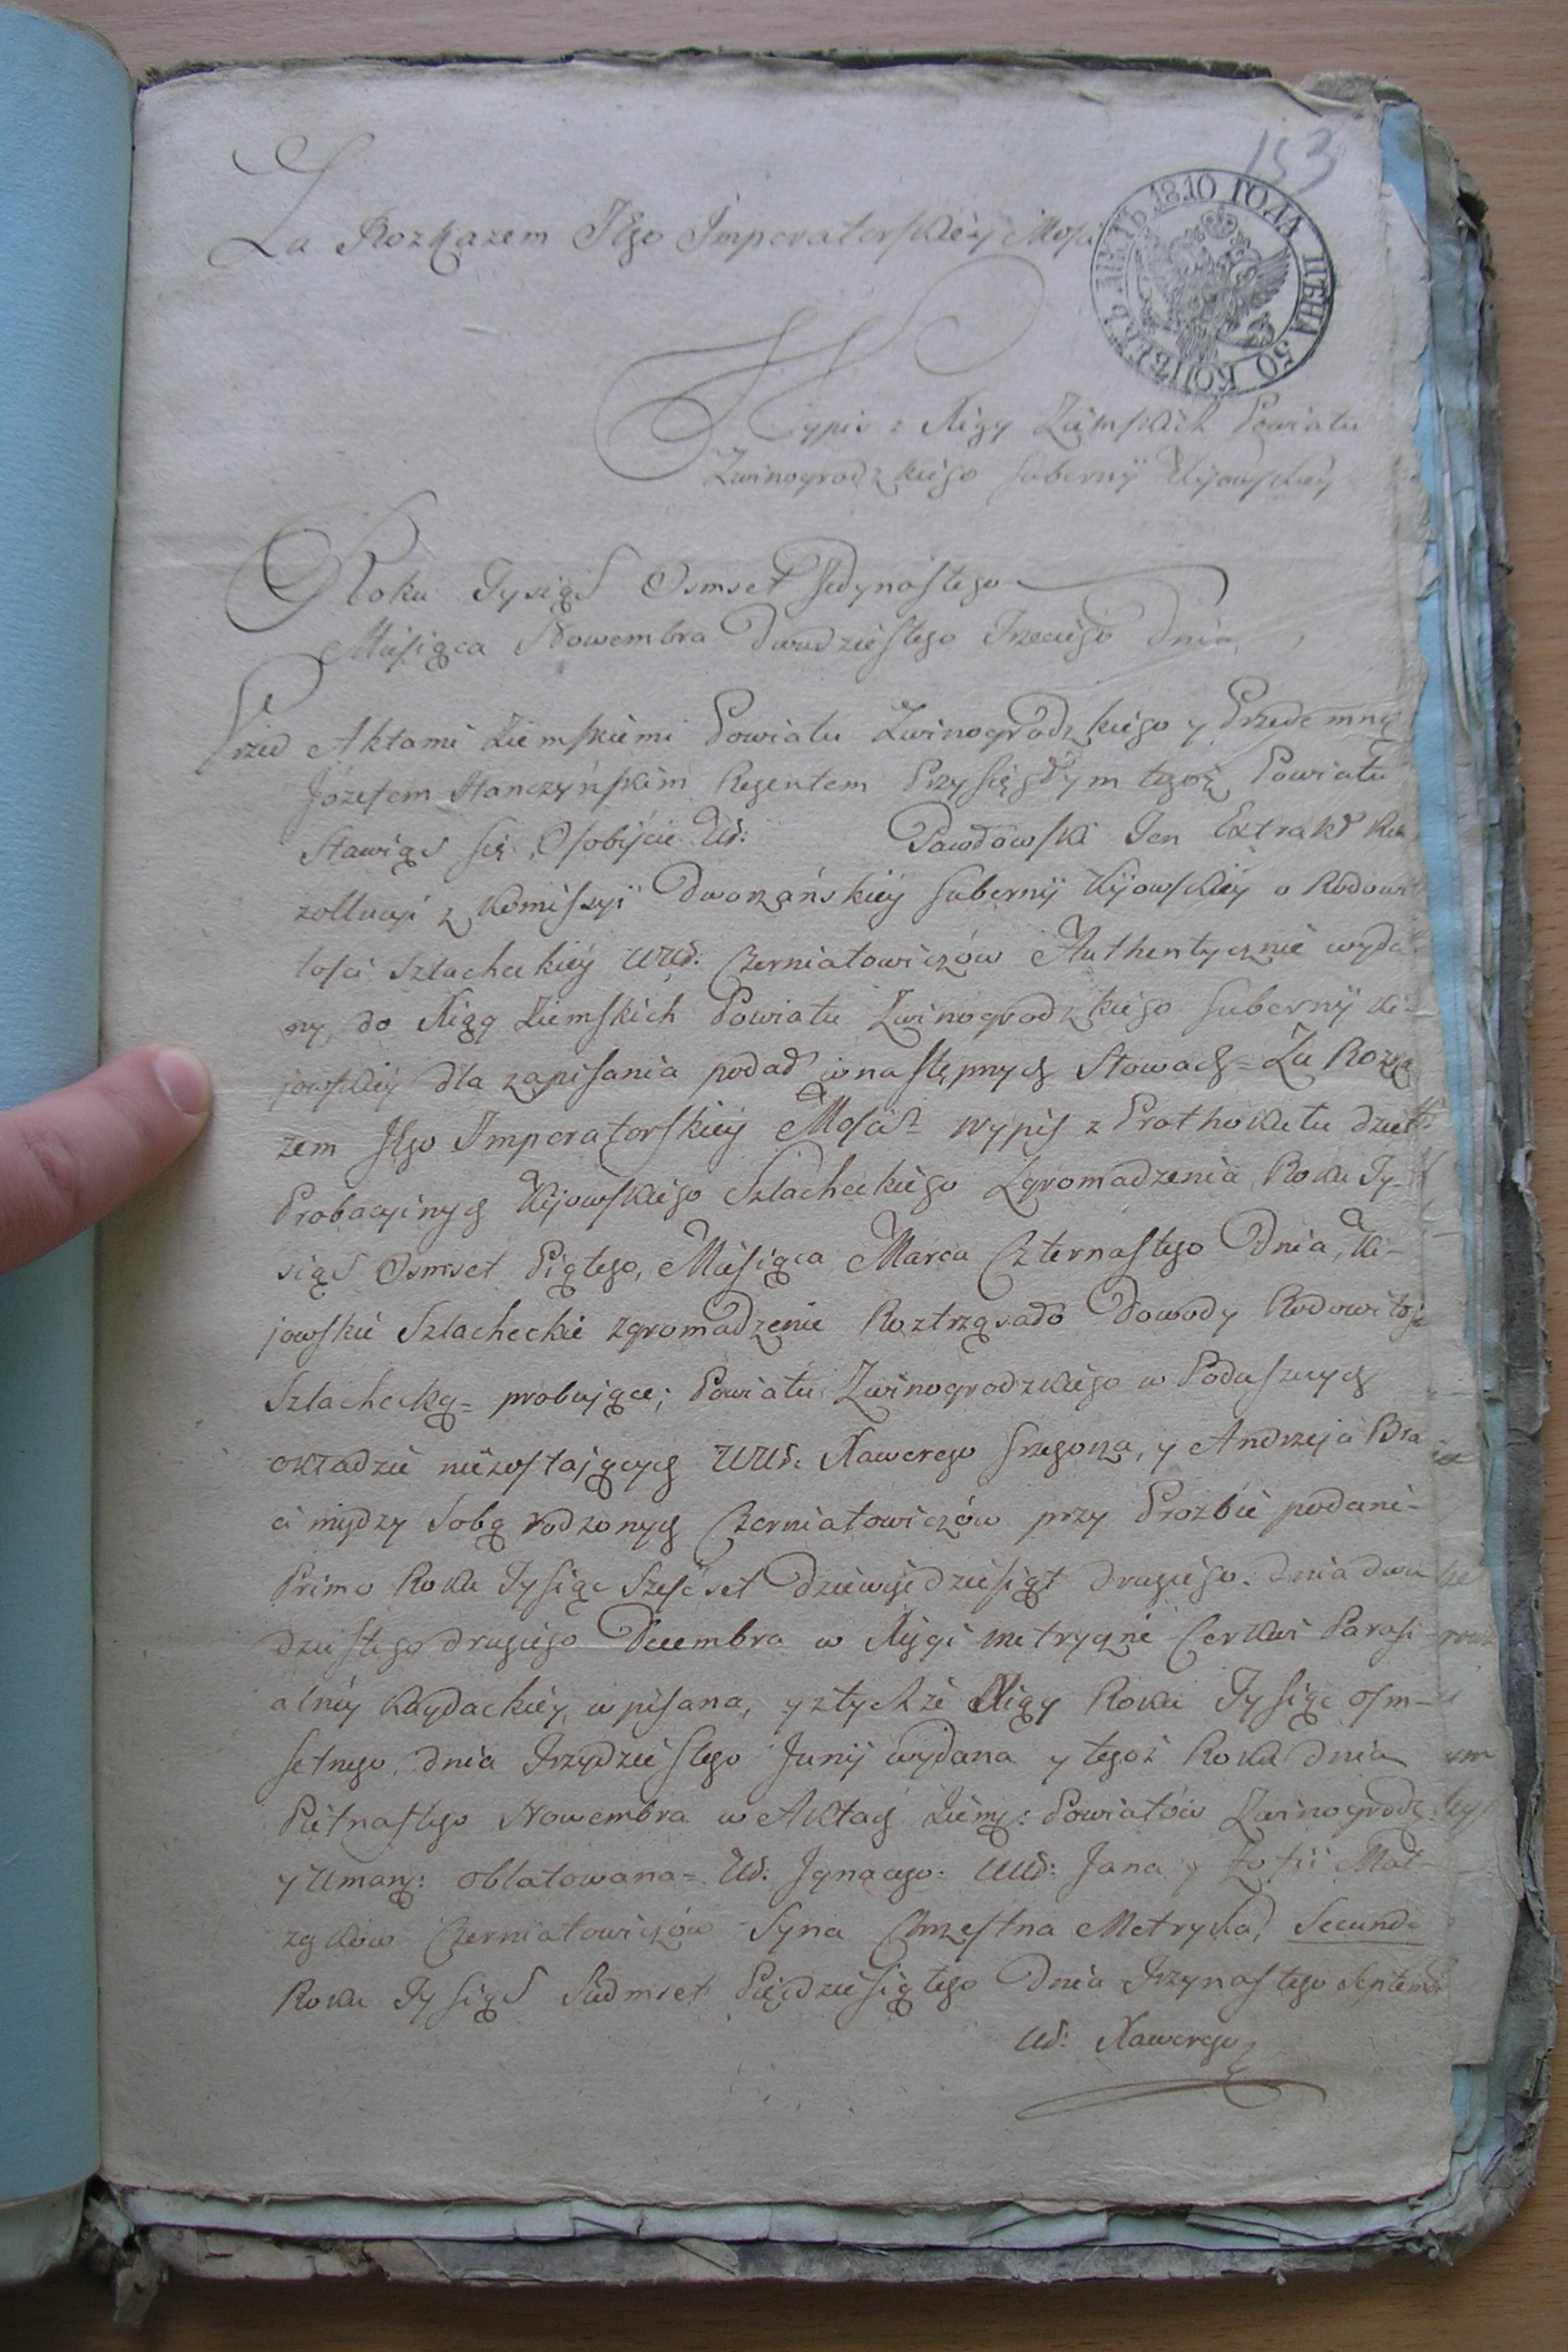 153
1810 ГОДА ЦѢНА 50 КОПѢЕКЪ
Za Rozkazem Jego Imperatorskiey Mości
Wypis z Xigy Ziemskich Powiatu
Zwinogrodzkiego Gubernÿ Kijowskiey
Roku Tysiąś Osmset Jedynastego
Miesiąca Nowembra Dwudziestego Trzeciego Dnia
Przed Aktami Ziemskiemi Powiatu Zwinogrodzkiego y Przedemną
Józefem Regentem Przysięgłym tegoż Powiatu
Stawiąś się Osobiście Ud: Pawłowski Ten Extrakt Re
zollucyi z Komissyi Dworzańskiey Gubernÿ Kijowskiey o Rodowi
tości Szlacheckiey UUd: Czerniatowiczów Authentycznie wyda
ny, do Xięg Ziemskich Powiatu Zwinogrodzkiego Gubernÿ Ki-
jowskiey dla zapisania podał w następnych Słowach = Za Rozka
zem Jego Imperatorskiey Mości = Wypis z Prothokułu dzieł
Probacyinych Kijowskiego Szlacheckiego Zgromadzenia Roku Ty-
siąś Osmset Piątego, Miesiąca Marca Czternastego Dnia, Ki-
jowskie Szlacheckie zgromadzenie Roztrząsało Dowody Rodowitość
Szlachecką = probujące; Powiatu Zwinogrodzkiego w Podusznych
okładzie niezostających UUd: Xawerego Grzegorza, y Andrzeja Bra
ci między Sobą rodzonych Czerniatowiczów przy Prozbie podane-
Primo Roku Tysiąc Sześćset Dziewięćdziesiąt drugiego dnia dwu
dziestego drugiego Decembra w Xięgi metryczne Cerkwi Parafi
alney wpisana, y z tychże Xigy Roku Tysiąc osm-
setnego, dnia Trzydziestego Junÿ wydana y tegoż Roku dnia
Piętnastego Nowembra w Aktach Ziems: Powiatów Zwinogrodz:
y Umańs: oblatowana = Ud: Ignacego: UUd: Jana y Zofii Mał-
żąków Czerniatowiczów Syna Chrzestna Metryka, Secundo
Roku Tysiąś Siedmset Pięćdziesiątego Dnia Trzynastego Septemb
Ud: Xawerego